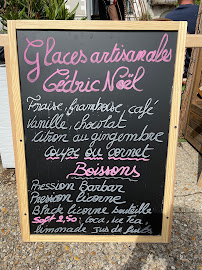 Glaces artisanales
Cédric Noël
Fraise, framboise, café
Vanille, chocolat
citron au gingembre
Coupe ou cornet
Boissons
Pression Barbar
Pression licorne
Black licorne bouteille
Soft 2,50 : coca, ice tea
limonade Jus de fruits